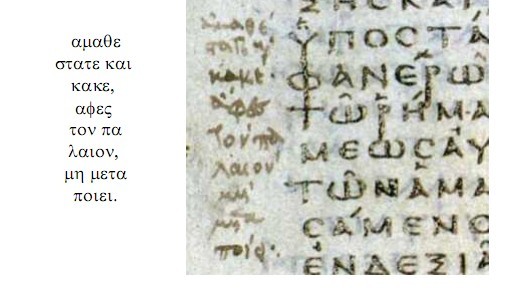 αμαθε
στατε και
κακε,
αφες
τον πα
λαιον,
μη μετα
ποιει.
αμαθέ
κακέ
άφες
τον πα
λαιον
μὴ
ποίει·
ΞΗϹΚΑΙ
ΥΠΟϹΤΑ
ΦΑΝΕΡΩ
ΤΩΡΗΜΑ
ΜΕΩϹΑΥ
ΤΩΝΑΜΑ
ϹΑΜΕΝΟ
ΕΝΔΕΞΙΑ